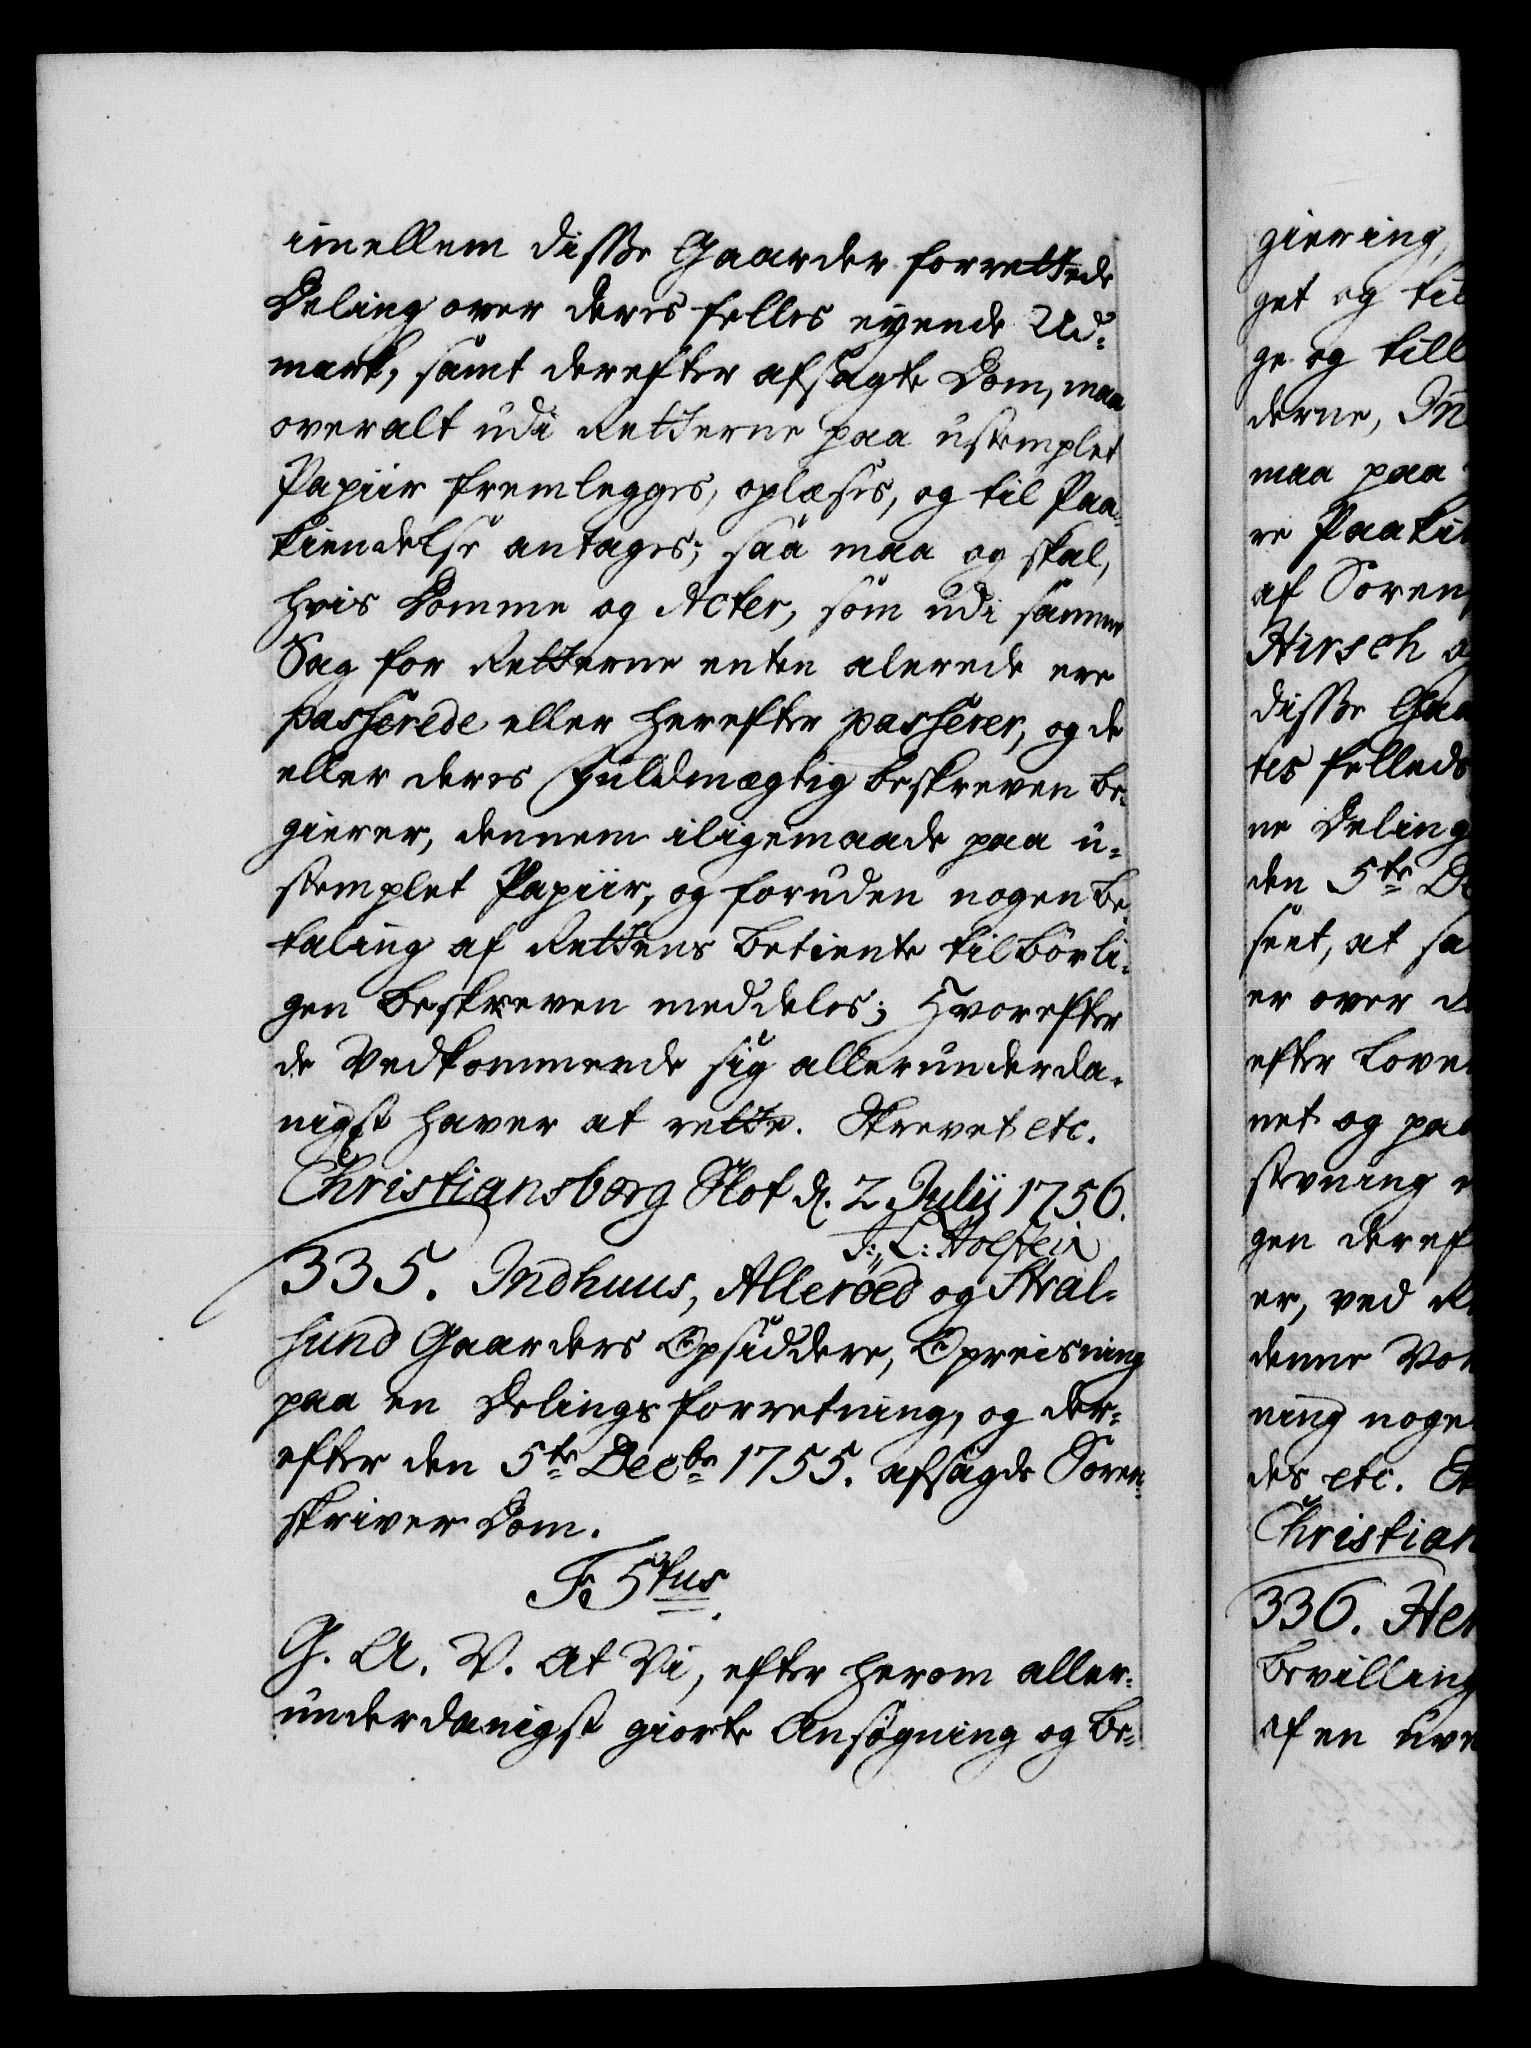 imellem disse Gaarder forrettede
Deling over deres felles eyende Ud-
mark, samt derefter afsagte Dom, maa
overalt udi Retterne paa ustemplet
Papiir fremlegges, oplæses, og til Paa-
kiendelse antages; saa maa og skal,
hvis Domme og Acter, som udi samme
Sag for Retterne enten alerede ere
passerede eller herefter passerer, og de
eller deres Fuldmægtig beskreven be-
gierer, dennem iligemaade paa u-
stemplet Papiir, og foruden nogen be-
taling af Rettens betiente tilbørli-
gen beskreven meddeles; Hvorefter
de Vedkommende sig allerunderda-
nigst haver at rette. Skrevet etc.
Christiansborg Slot d. 2 Julij 1756.
J: L: Holstein
335. Indhuus, Alleröed og Stral-
sund Gaarders Opsiddere, Opreisning
paa en Delings forretning, og der-
efter den 5te Decbr 1755. afsagde Soren-
skriver Dom.
F. 5tus.
G. A. V. at Vi, efter herom aller-
underdanigst giorte Ansøgning og be-
giering,
get og til
ge og till
derne, In
maa paa
re Paaki
af Soren
Hirsch og
disse Gaa
tes felleds
ne Deling
den 5te De
seet, at sa
er over d
efter Love
net og paa
stevning
gen deref
er, ved Re
denne Vor
ning noge
des etc.
Christian
336. Hen
bevilling
af en uve